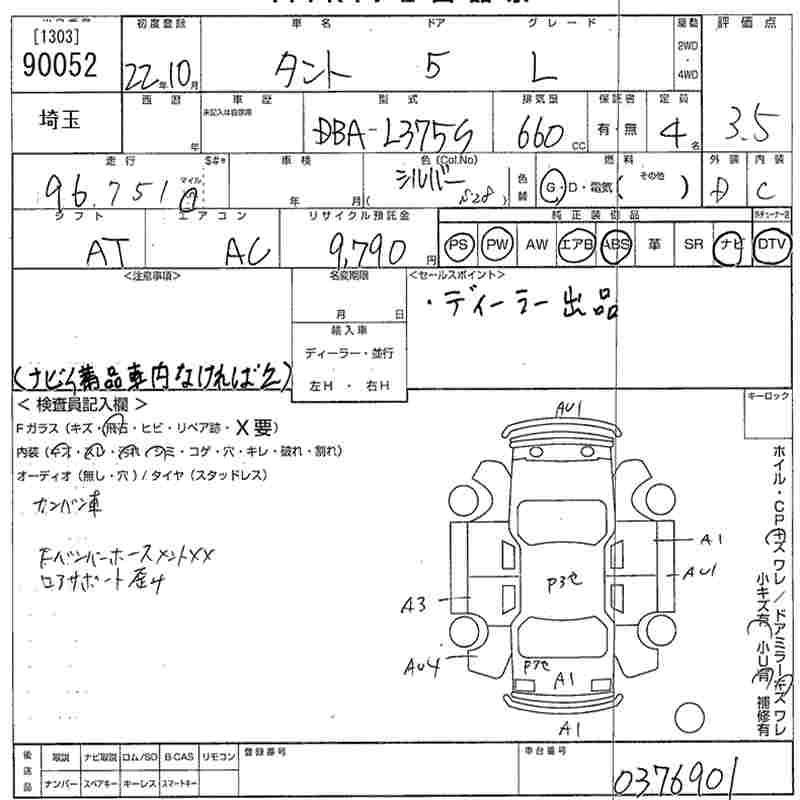 [1303]
90052
初度登録
22年10月
車名 ドア グレード
タント 5 L
駆動
2WD
・
4WD
評価点
3.5
埼玉
西暦
年
車歴
未記入は自家用
型式
DBA-L375S
排気量
660 CC
保証書
有・無
定員
4名
走行
96,751
マイル
S#*
車検
年 月
色(Col.No)
シルバー
(S28)
色替
燃料
G・D・電気( その他 )
外装
D
内装
C
シフト
AT
エアコン
AC
リサイクル預託金
9,790円
純正装備品
PS PW AW エアB ABS 革 SR ナビ DTV
<注意事項>
(ナビ付属品車内なければ欠)
名変期限
月 日
輸入車
ディーラー・並行
左H ・ 右H
<セールスポイント>
・ディーラー出品
<検査員記入欄>
Fガラス(キズ・飛石・ヒビ・リペア跡・X要)
内装(キオ・スレ・汚れ・シミ・コゲ・穴・キレ・破れ・割れ)
オーディオ(無し・穴)/タイヤ(スタッドレス)
カンバン車
キーロック
ホイル・CPキズ ワレ/ドアミラーキズ ワレ
小キズ有 小U有 補修有
AU1
A1
AU1
A3
P3セ
AU4
P7セ
A1
A1
後店品
取説 ナビ取説 ロム/SD B-CAS リモコン
ナンバー スペアキー キーレス スマートキー
登録番号
車台番号
0376901